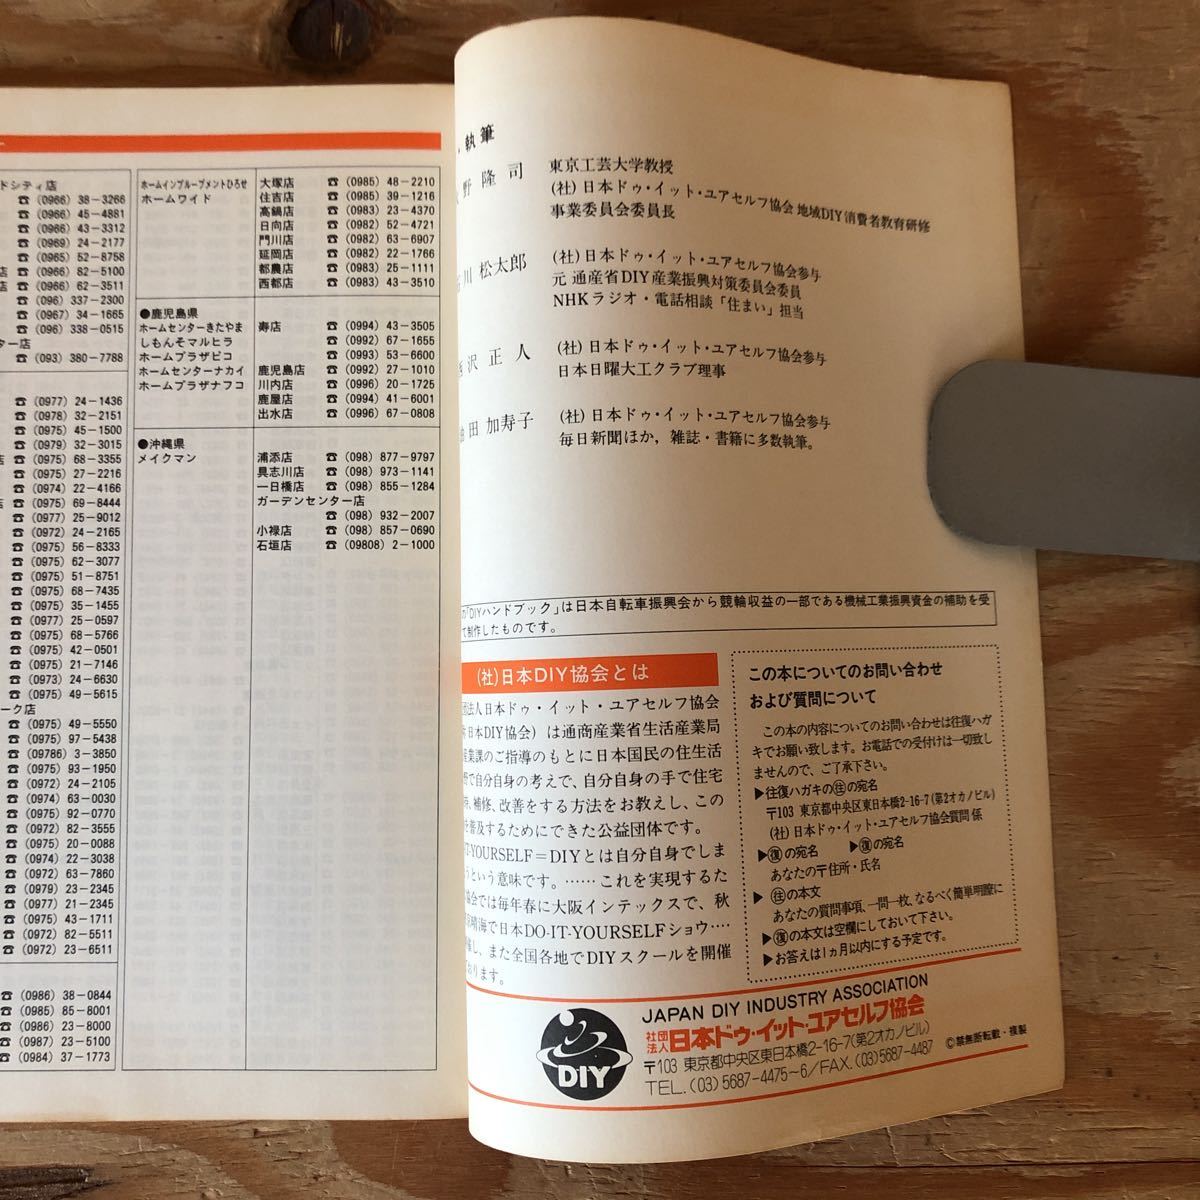 ドシティ店
☎ (0966) 38-3266
☎ (0966) 45-4881
☎ (0966) 43-3312
☎ (0969) 24-2177
☎ (0965) 52-8758
店 ☎ (0966) 82-5100
店 ☎ (0966) 62-3511
☎ (096) 337-2300
☎ (0967) 34-1665
☎ (096) 338-0515
ター店
☎ (093) 380-7788
☎ (0977) 24-1436
☎ (0978) 32-2151
☎ (0975) 45-1500
☎ (0979) 32-3015
店 ☎ (0975) 68-3355
☎ (0975) 27-2216
☎ (0974) 22-4166
店 ☎ (0975) 69-8444
☎ (0977) 25-9012
☎ (0972) 24-2165
☎ (0975) 56-8333
☎ (0975) 62-3077
☎ (0975) 51-8751
☎ (0975) 68-7435
☎ (0975) 35-1455
☎ (0977) 25-0597
☎ (0975) 68-5766
☎ (0975) 42-0501
☎ (0975) 21-7146
☎ (0973) 24-6630
☎ (0975) 49-5615
ーク店
☎ (0975) 49-5550
☎ (0975) 97-5438
☎ (09786) 3-3850
☎ (0975) 93-1950
☎ (0972) 24-2105
☎ (0974) 63-0030
☎ (0975) 92-0770
☎ (0972) 82-3555
☎ (0975) 20-0088
☎ (0974) 22-3038
☎ (0972) 63-7860
☎ (0979) 23-2345
☎ (0977) 21-2345
☎ (0975) 43-1711
☎ (0972) 82-5511
☎ (0972) 23-6511
☎ (0986) 38-0844
☎ (0985) 85-8001
☎ (0986) 23-8000
☎ (0987) 23-5100
☎ (0984) 37-1773
ホームインプルーブメントひろせ 大塚店 ☎ (0985) 48-2210
ホームワイド 住吉店 ☎ (0985) 39-1216
高鍋店 ☎ (0983) 23-4370
日向店 ☎ (0982) 52-4721
門川店 ☎ (0982) 63-6907
延岡店 ☎ (0982) 22-1766
都農店 ☎ (0983) 25-1111
西都店 ☎ (0983) 43-3510
●鹿児島県
ホームセンターきたやま 寿店 ☎ (0994) 43-3505
しもんそマルヒラ ☎ (0992) 67-1655
ホームプラザピコ ☎ (0993) 53-6600
ホームセンターナカイ 鹿児島店 ☎ (0992) 27-1010
ホームプラザナフコ 川内店 ☎ (0996) 20-1725
鹿屋店 ☎ (0994) 41-6001
出水店 ☎ (0996) 67-0808
●沖縄県
メイクマン 浦添店 ☎ (098) 877-9797
具志川店 ☎ (098) 973-1141
一日橋店 ☎ (098) 855-1284
ガーデンセンター店
☎ (098) 932-2007
小禄店 ☎ (098) 857-0690
石垣店 ☎ (09808) 2-1000
・執筆
野 隆司 東京工芸大学教授
(社)日本ドゥ・イット・ユアセルフ協会 地域DIY消費者教育研修
事業委員会委員長
川 松太郎 (社)日本ドゥ・イット・ユアセルフ協会参与
元 通産省DIY産業振興対策委員会委員
NHKラジオ・電話相談「住まい」担当
沢 正人 (社)日本ドゥ・イット・ユアセルフ協会参与
日本日曜大工クラブ理事
田 加寿子 (社)日本ドゥ・イット・ユアセルフ協会参与
毎日新聞ほか，雑誌・書籍に多数執筆。
の「DIYハンドブック」は日本自転車振興会から競輪収益の一部である機械工業振興資金の補助を受
て制作したものです。
(社)日本DIY協会とは
団法人日本ドゥ・イット・ユアセルフ協会
日本DIY協会）は通商産業省生活産業局
産業課のご指導のもとに日本国民の住生活
で自分自身の考えで、自分自身の手で住宅
、補修、改善をする方法をお教えし、この
を普及するためにできた公益団体です。
IT-YOURSELF＝DIYとは自分自身でしま
うという意味です。……これを実現するた
協会では毎年春に大阪インテックスで、秋
晴海で日本DO-IT-YOURSELFショウ‥‥
催し、また全国各地でDIYスクールを開催
おります。
この本についてのお問い合わせ
および質問について
この本の内容についてのお問い合せは往復ハガ
キでお願い致します。お電話での受付は一切致し
ませんので、ご了承下さい。
▶往復ハガキの㊟の宛名
〒103 東京都中央区東日本橋2-16-7(第2オカノビル)
(社)日本ドゥ・イット・ユアセルフ協会質問係
▶復の宛名 ▶復の宛名
あなたの〒住所・氏名
▶往の本文
あなたの質問事項、一問一枚、なるべく簡単明瞭に
▶復の本文は空欄にしておいて下さい。
▶お答えは1ヵ月以内にする予定です。
DIY
JAPAN DIY INDUSTRY ASSOCIATION
社団法人日本ドゥ・イット・ユアセルフ協会
〒103 東京都中央区東日本橋2-16-7(第2オカノビル)
TEL.(03)5687-4475~6/FAX.(03)5687-4487
©禁無断転載・複製